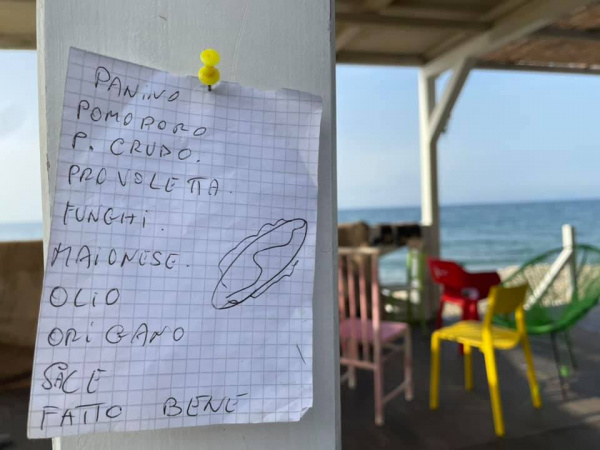 PANINO
POMODORO
P. CRUDO.
PROVOLETTA.
FUNGHI.
MAIONESE.
OLIO
ORIGANO
SALE
FATTO BENE